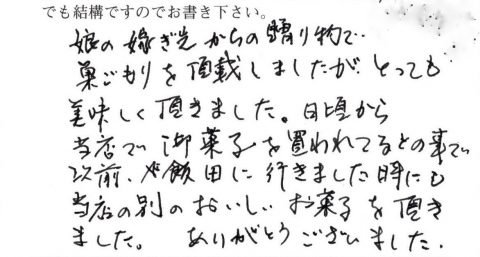 でも結構ですのでお書き下さい。
娘の嫁ぎ先からの贈り物で
巣ごもりを頂載しましたが、とっても
美味しく頂きました。日頃から
当店で御菓子を買われてるとの事で
以前、飯田に行きました時にも
当店の別のおいしいお菓子を頂き
ました。 ありがとうございました.